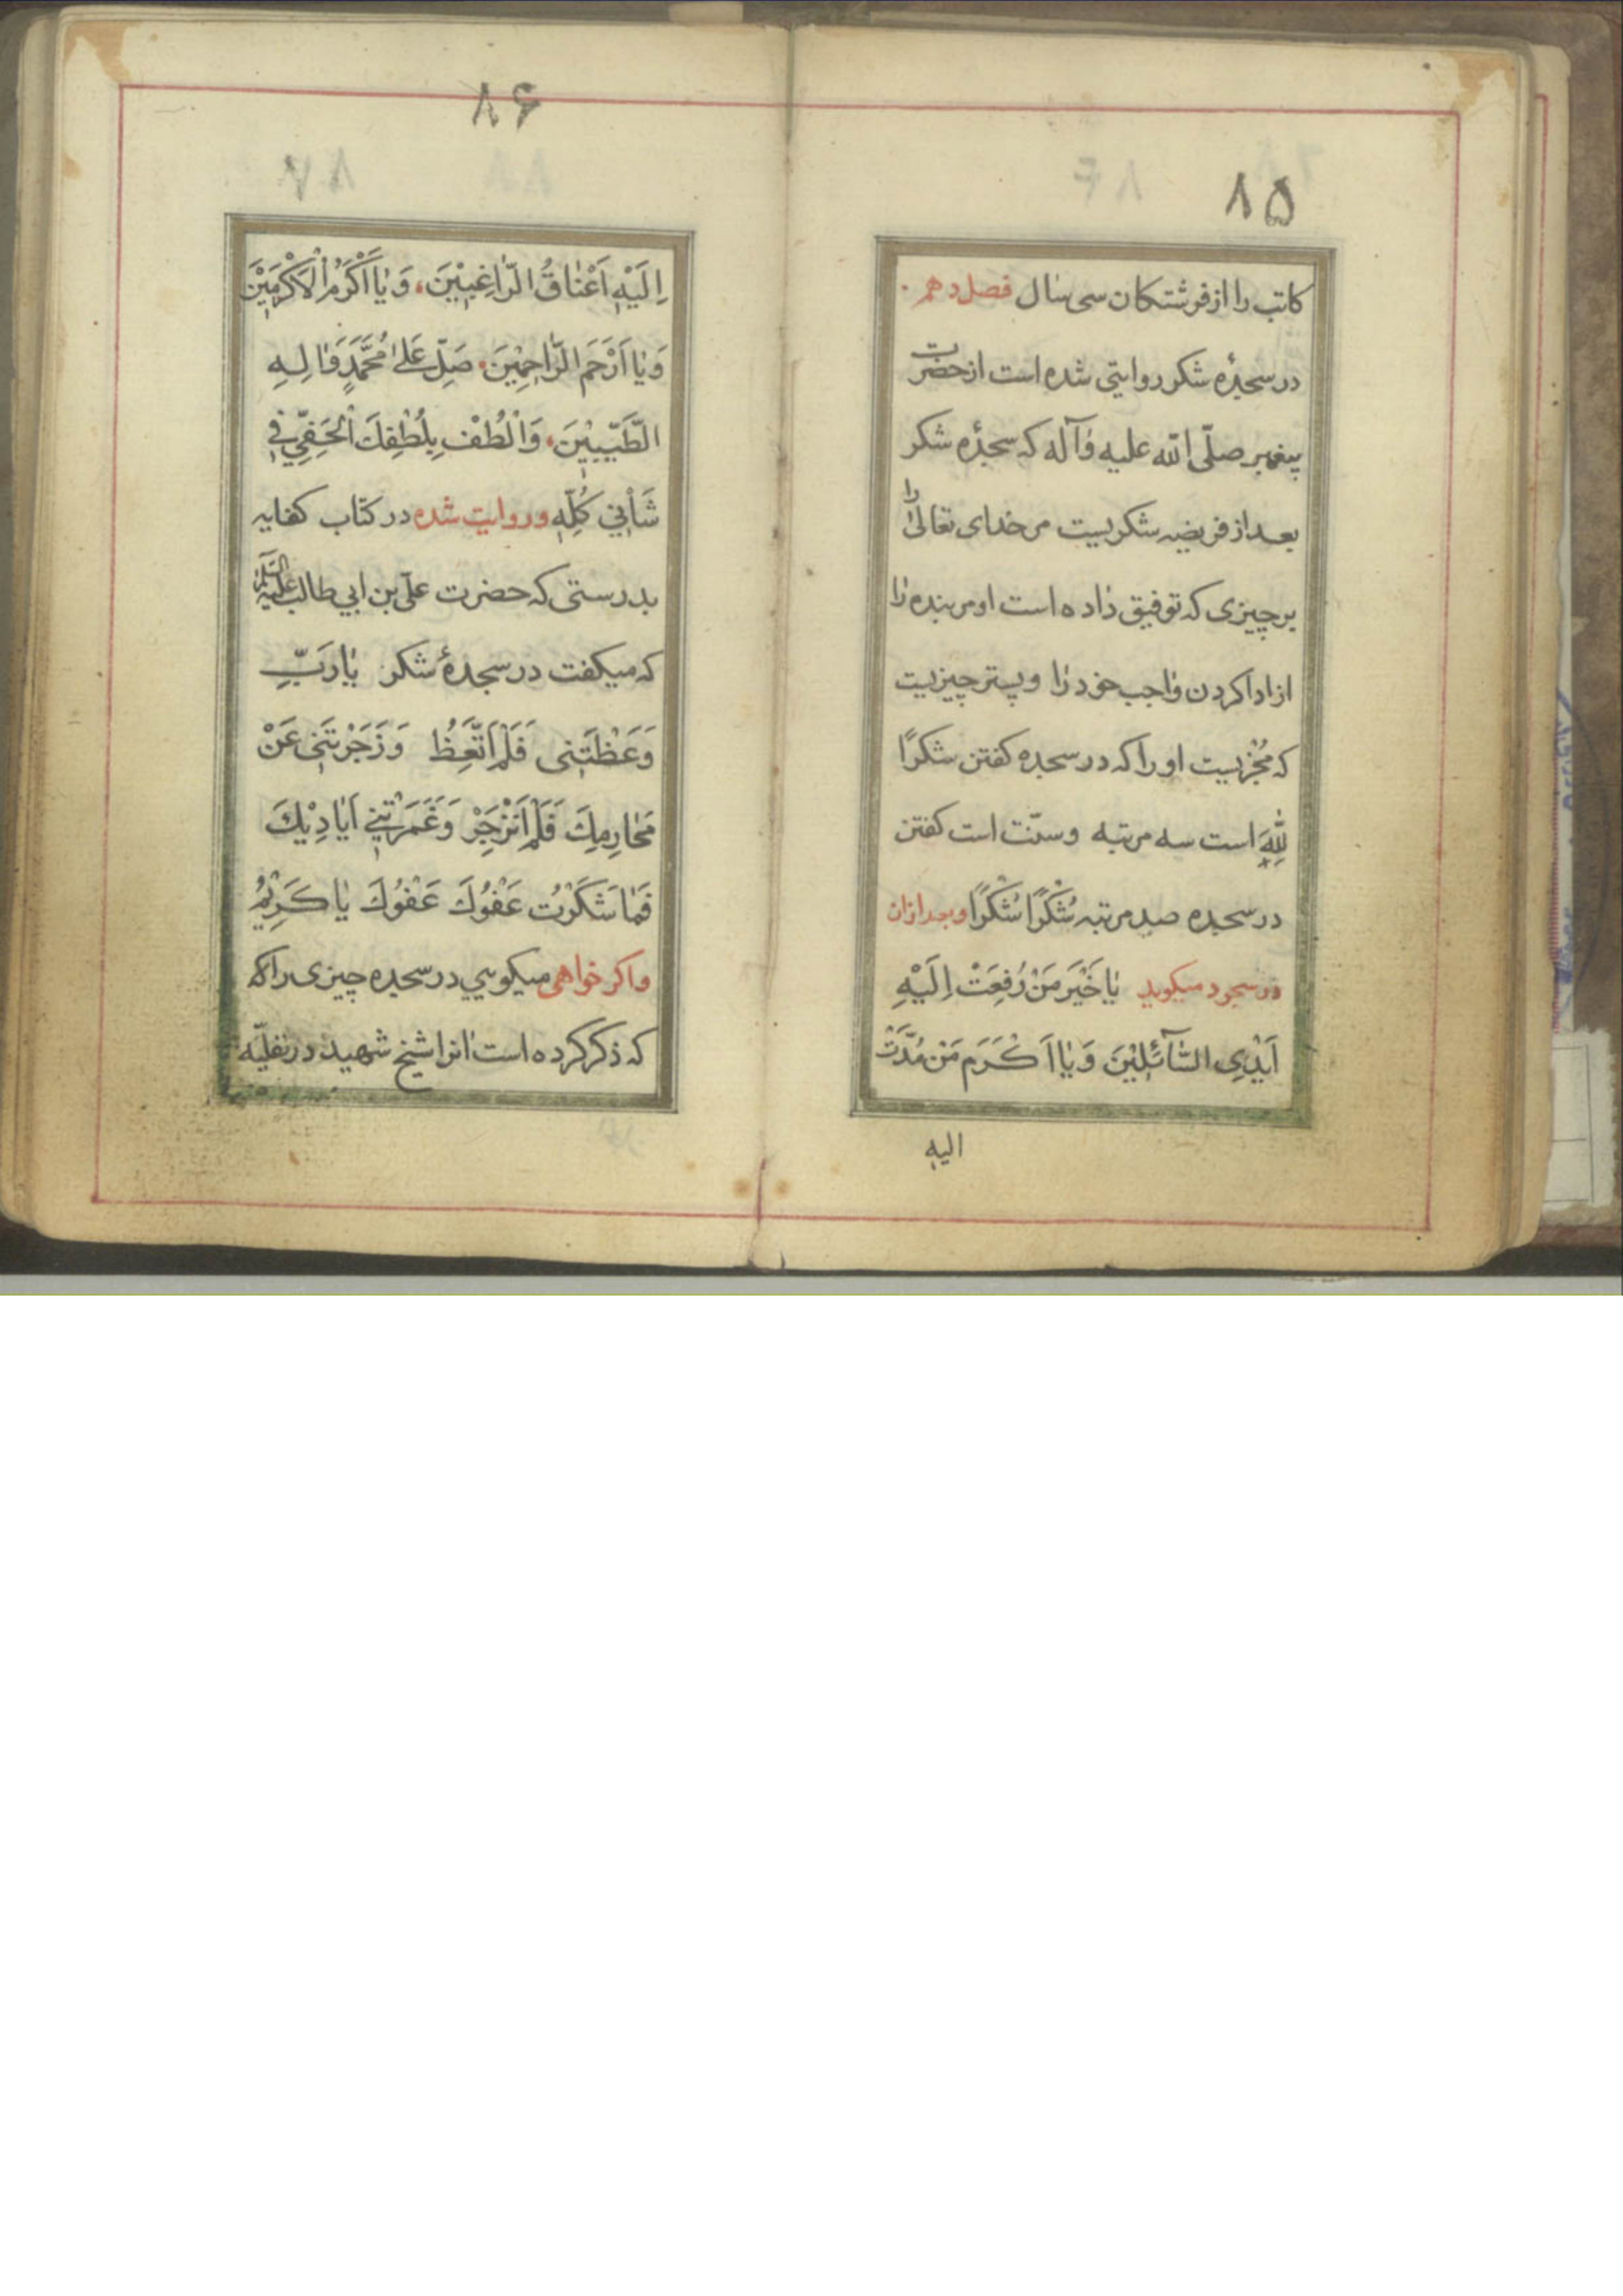 ۸۵
کاتب را از فرشتکان سی سال فصل دهم
در سجدهٔ شکر روایتی شده است از حضرت
پیغمبر صلّی الله علیه وآله که سجدهٔ شکر
بعد از فریضه شکریست مر خدای تعالیٰ را
بر چیزی که توفیق داده است او مر بنده را
از ادا کردن واجب خود را و پستر چیزیست
که مُجْزیست او را که در سجده کفتن شکرًا
لِلّٰهِ است سه مرتبه وسنّت است کفتن
در سجده صد مرتبه شُکْرًا شُکْرًا وبعد ازان
در سجود میکوید یٰا خَیْرَ مَنْ رُفِعَتْ اِلَیْهِ
اَیْدِی السّٰآئِلِیْنَ وَیٰا اَکْرَمَ مَنْ مُدَّتْ
الیه
۸۶
اِلَیْهِ اَعْنٰاقُ الرّٰاغِبِیْنَ، وَیٰا اَکْرَمَ الْاَکْرَمِیْنَ
وَیٰا اَرْحَمَ الرّٰاحِمِیْنَ صَلِّ عَلیٰ مُحَمَّدٍ وَاٰلِهِ
الطَّیِّبِیْنَ، وَالْطُفْ بِلُطْفِكَ الْخَفِیِّ فِی
شَأْنِی کُلِّهِ وروایت شده در کتاب کفایه
بدرستی که حضرت علی بن ابی طالب علیه السّلام
که میکفت در سجدهٔ شکر یٰا رَبِّ
وَعَظْتَنِی فَلَمْ اَتَّعِظْ وَزَجَرْتَنِی عَنْ
مَحٰارِمِكَ فَلَمْ اَنْزَجِرْ وَغَمَرْتَنِی اَیٰادِیْكَ
فَمٰا شَکَرْتُ عَفْوَكَ عَفْوَكَ یٰا کَرِیْمُ
واکر خواهی میکویی در سجده چیزی را که
که ذکر کرده است انرا شیخ شهید در نفلیّه